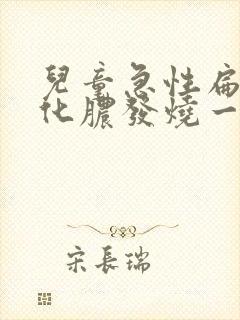 兒童急性扁
化膿發燒一
宋長瑞